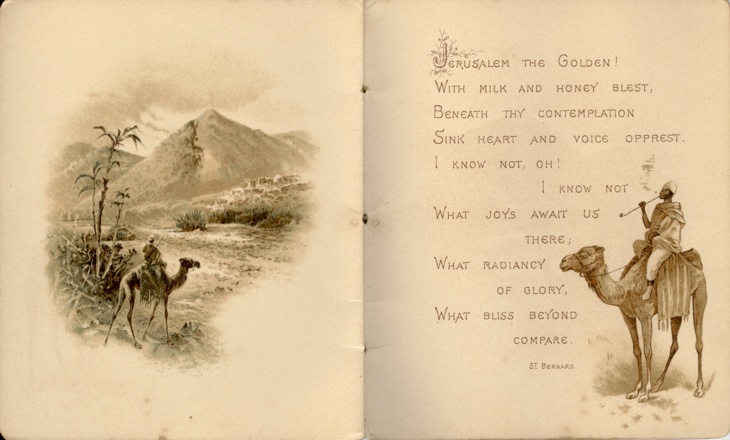 Jerusalem the Golden!
With milk and honey blest,
Beneath thy contemplation
Sink heart and voice opprest.
I know not, oh!
I know not
What joys await us
there;
What radiancy
of glory,
What bliss beyond
compare.
St Bernard.